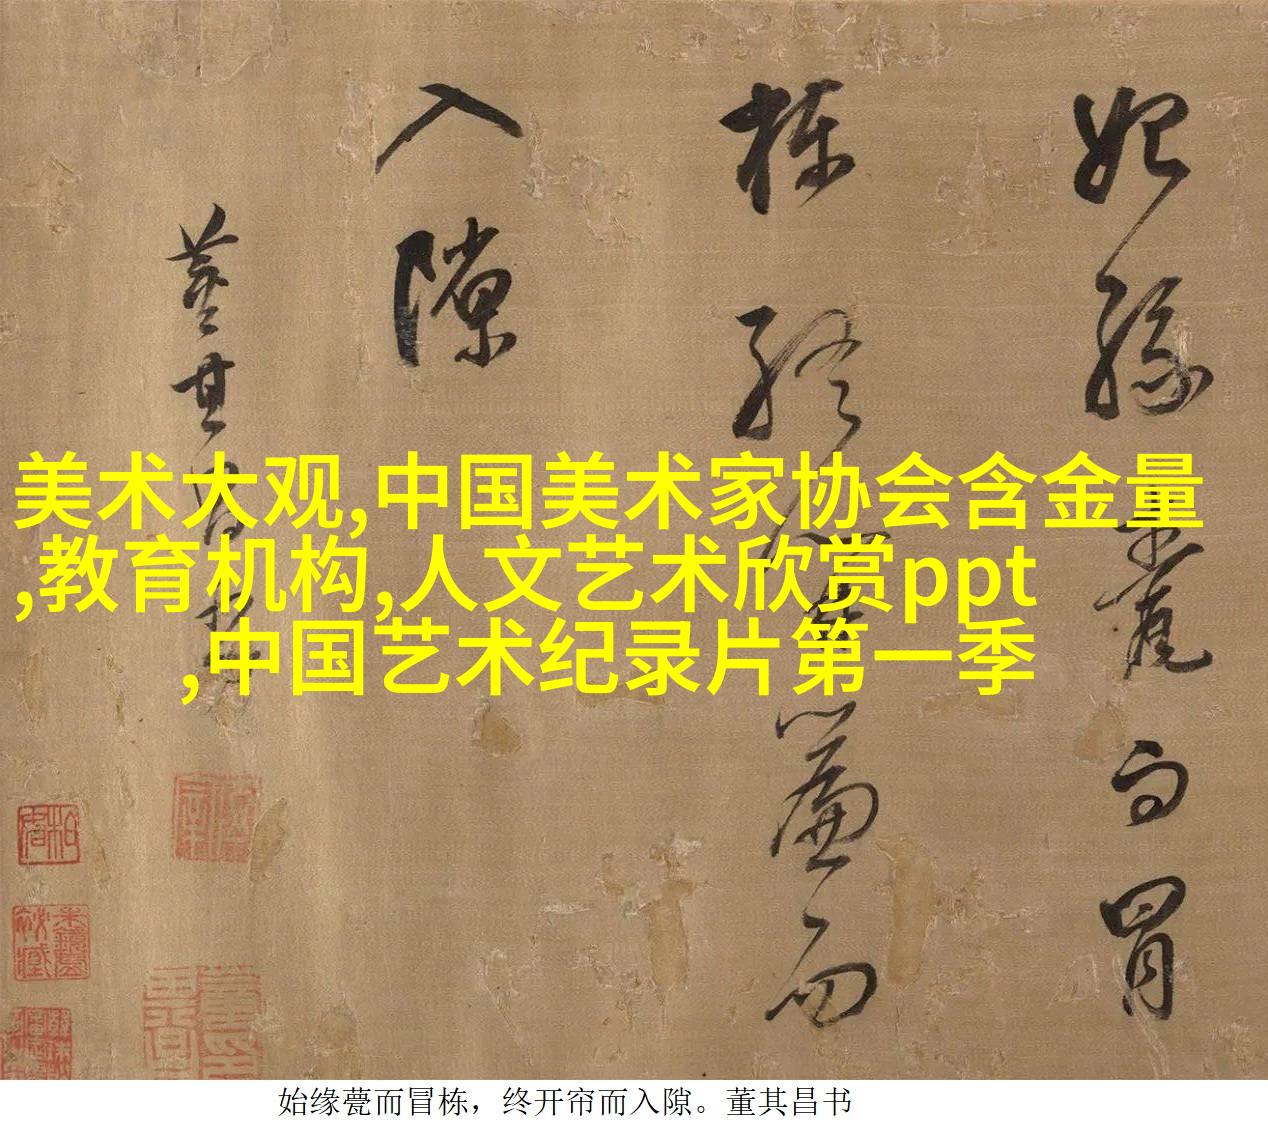 始缘甍而冒
栋终开簾而
入隙
董其昌书
美术大观,中国美术家协会含金量
,教育机构,人文艺术欣赏ppt
,中国艺术纪录片第一季
始缘甍而冒栋，终开帘而入隙。董其昌书